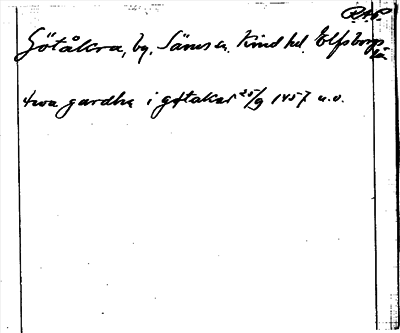 R.A.P.
Götåkra, by, Säms sn. Kind hd. Elfsborgs
län
twa gardha i gøtakar 25/9 1457 u.o.